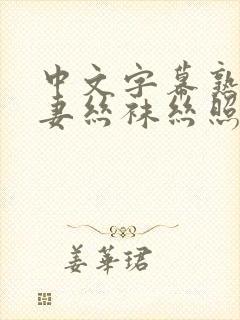 中文字幕熟
妻丝袜丝照
姜华珺